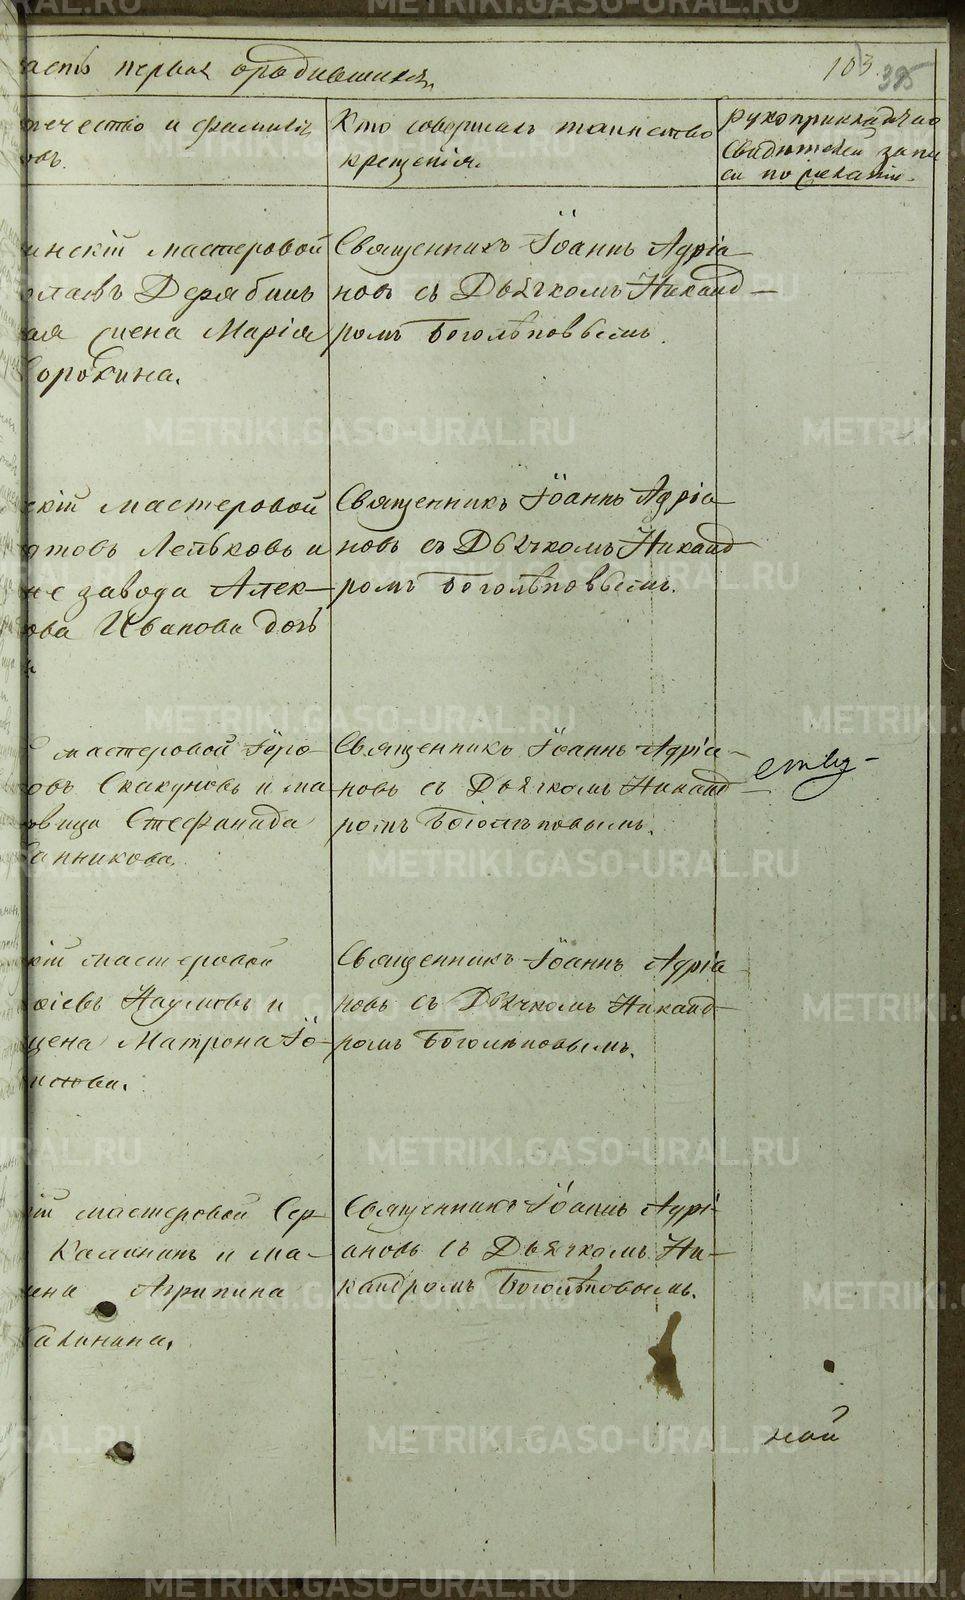 METRIKI.GASO-URAL.RU
асть первая о родившихся
103.
395
течество и фамилія
овъ.
Кто совершалъ таинство
крещенія.
рукоприкладство
свидѣтелей запи
си по желанію.
инскій мастеровой
олаевъ Дерябинъ
ая жена Марія
Сорокина.
Священникъ Іоаннъ Адріа
новъ съ Дьячкомъ Никанд
ромъ Боголѣповымъ.
скій мастеровой
товъ Лепьковъ и
не завода Алек-
ова Иванова дочь
Священникъ Іоаннъ Адріа
новъ съ Дьячкомъ Никанд
ромъ Боголѣповымъ.
мастеровой
овъ Скакуновъ и ма
вица Стефанида
анникова.
Священникъ Іоаннъ Адріа
новъ съ Дьячкомъ Никанд
ромъ Боголѣповымъ.
кій мастеровой
Наумовъ и
жена Матрона
Священникъ Іоаннъ Адріа
новъ съ Дьячкомъ Никанд
ромъ Боголѣповымъ.
ій мастеровой Сер
Калининъ и
ена Агрипина
Калинина.
Священникъ Іоаннъ Адрі
ановъ съ Дьячкомъ Ни-
кандромъ Боголѣповымъ.
ной